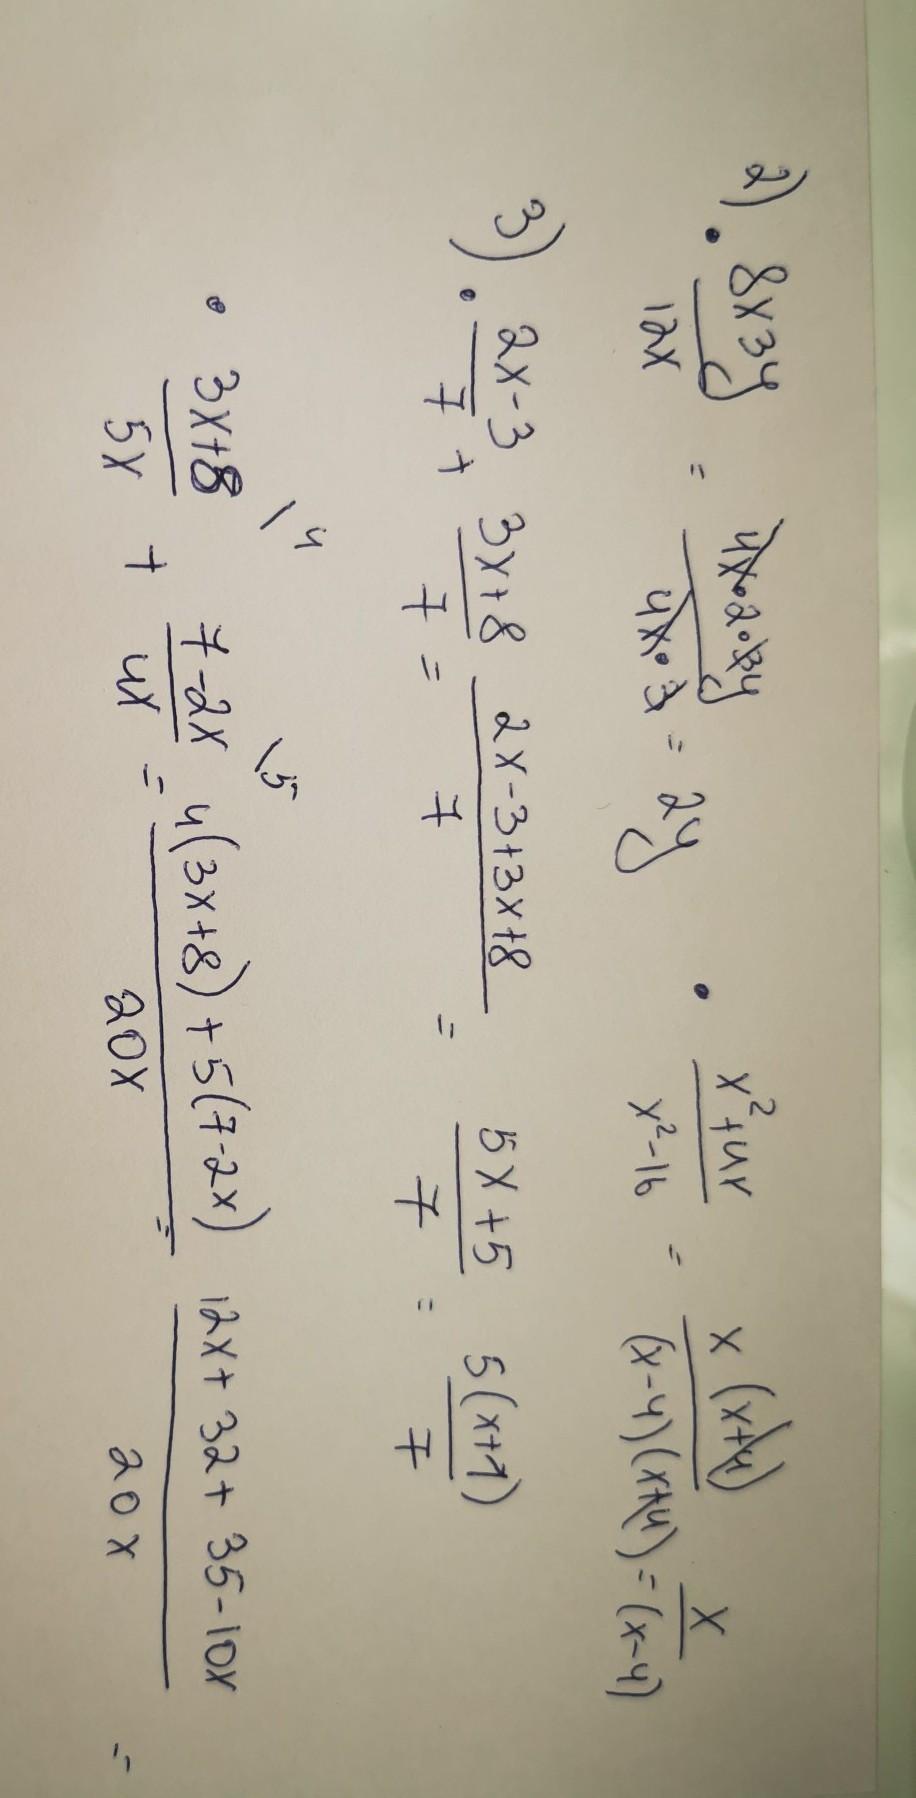 2) • 8x3y/12x = 4x•2•3y/4x•3 = 2y • x²+4x/x²-16 = x(x+4)/(x-4)(x+4) = x/(x-4)
3) • 2x-3/7 + 3x+8/7 = 2x-3+3x+8/7 = 5x+5/7 = 5(x+1)/7
• 3x+8/5x \4 + 7-2x/4x \5 = 4(3x+8)+5(7-2x)/20x = 12x+32+35-10x/20x =